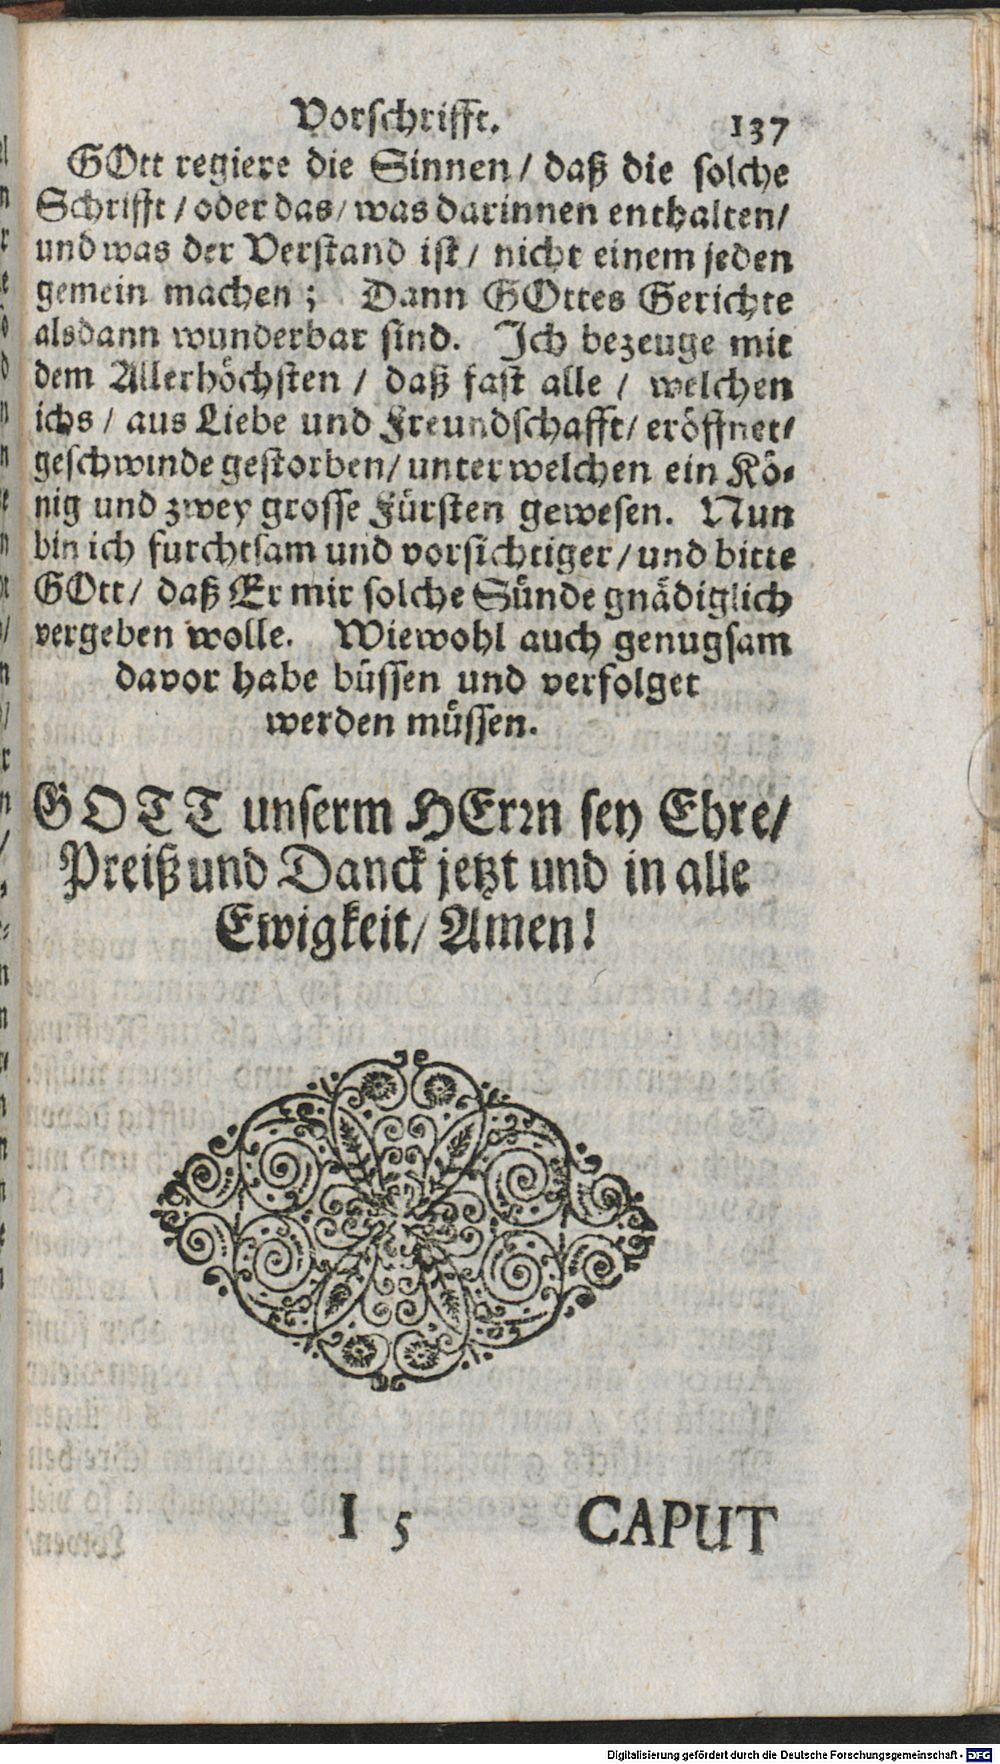 Vorschrifft. 137
GOtt regiere die Sinnen / daß die solche
Schrifft / oder das / was darinnen enthalten /
und was der Verstand ist / nicht einem jeden
gemein machen ; Dann GOttes Gerichte
alsdann wunderbar sind. Ich bezeuge mit
dem Allerhöchsten / daß fast alle / welchen
ichs / aus Liebe und Freundschafft / eröffnet /
geschwinde gestorben / unter welchen ein Kö-
nig und zwey grosse Fürsten gewesen. Nun
bin ich furchtsam und vorsichtiger / und bitte
GOtt / daß Er mir solche Sünde gnädiglich
vergeben wolle. Wiewohl auch genugsam
davor habe büssen und verfolget
werden müssen.
GOTT unserm HErrn sey Ehre /
Preiß und Danck jetzt und in alle
Ewigkeit / Amen !
I 5 CAPUT
Digitalisierung gefördert durch die Deutsche Forschungsgemeinschaft - DFG